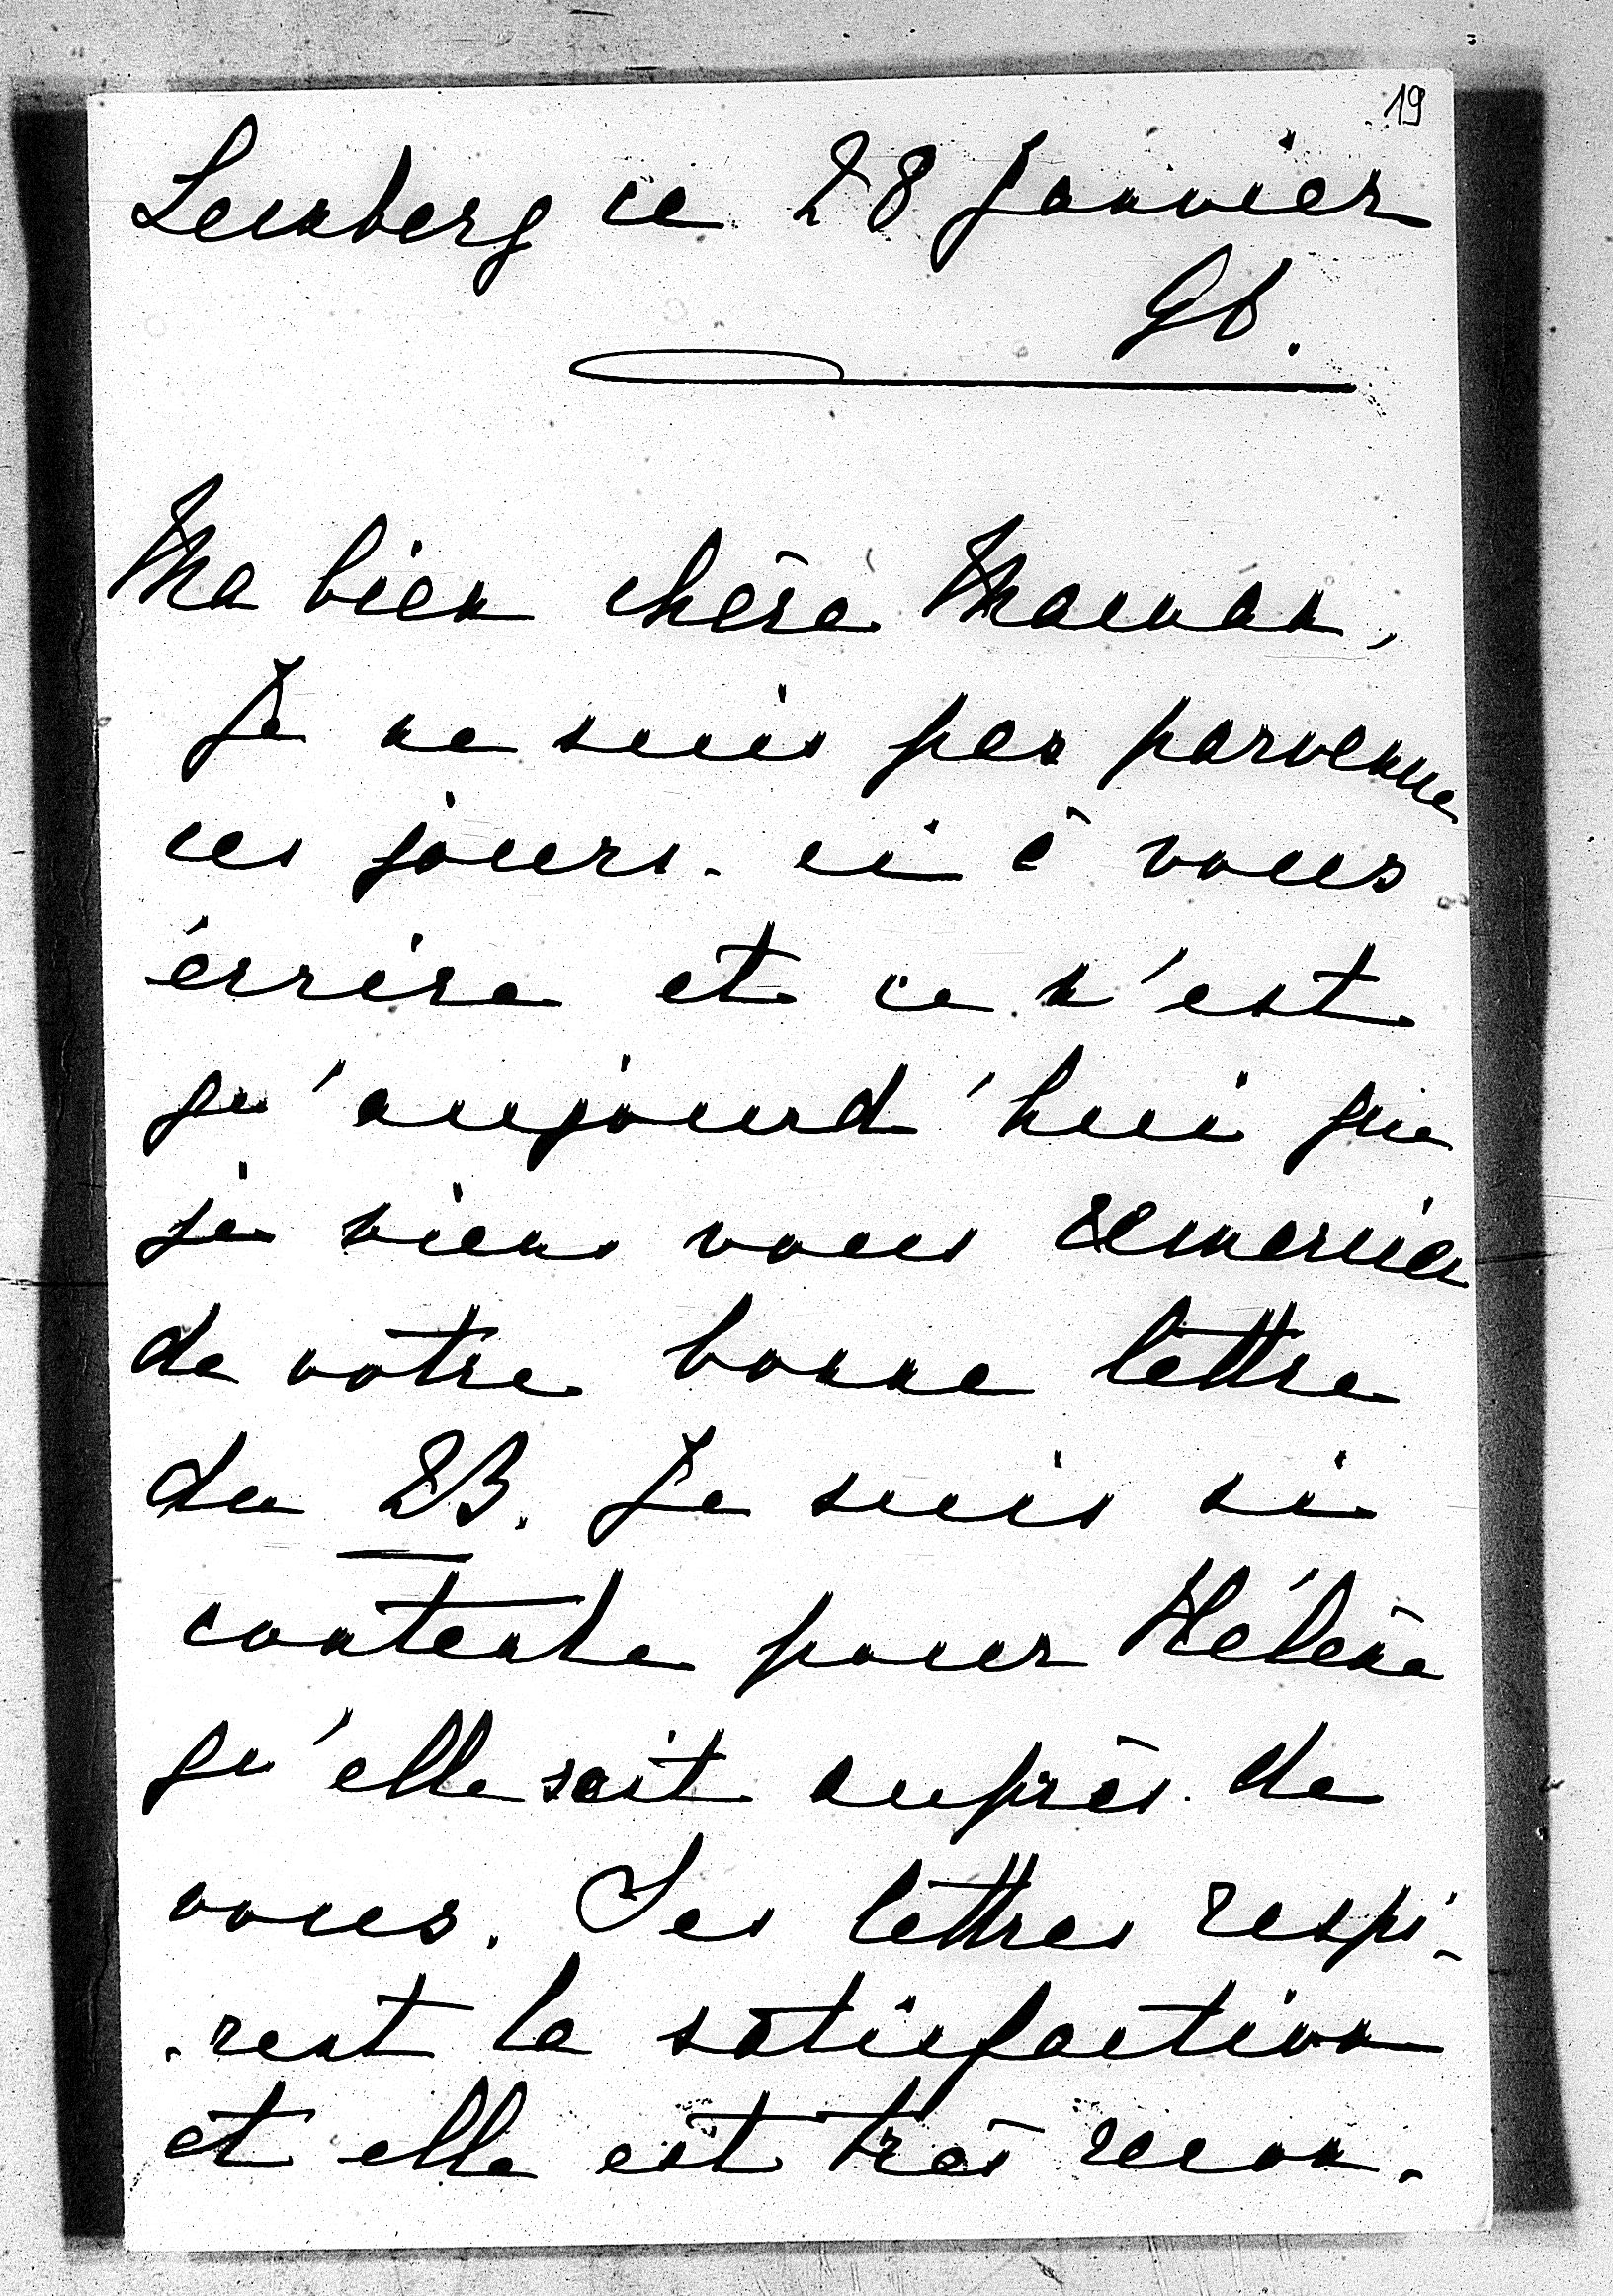 19
Lemberg ce 28 Janvier
96.
Ma bien chère Maman,
Je ne suis pas parvenue
ces jours-ci à vous
écrire et ce n'est
qu'aujourd'hui que
je viens vous remercier
de votre bonne lettre
du 23. Je suis si
contente pour Hélène
qu'elle soit auprès de
vous. Ses lettres respi-
-rent la satisfaction
et elle est très recon-